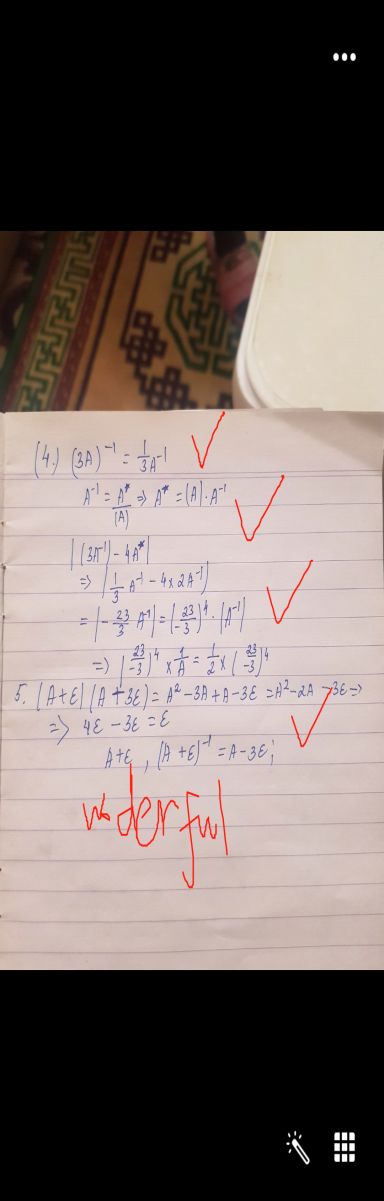 (4.) (3A)⁻¹ = 1/3 A⁻¹
A⁻¹ = A*/|A| => A* = |A|·A⁻¹
|(3A⁻¹) - 4A*|
=> |1/3 A⁻¹ - 4x2A⁻¹|
= |-23/3 A⁻¹| = (23/-3)⁴ · |A⁻¹|
=> (23/-3)⁴ x 1/A = 1/2 x (23/-3)⁴
5. (A+E)(A+3E) = A²-3A+A-3E = A²-2A-3E =>
=> 4E - 3E = E
A+E, (A+E)⁻¹ = A-3E;
woderful